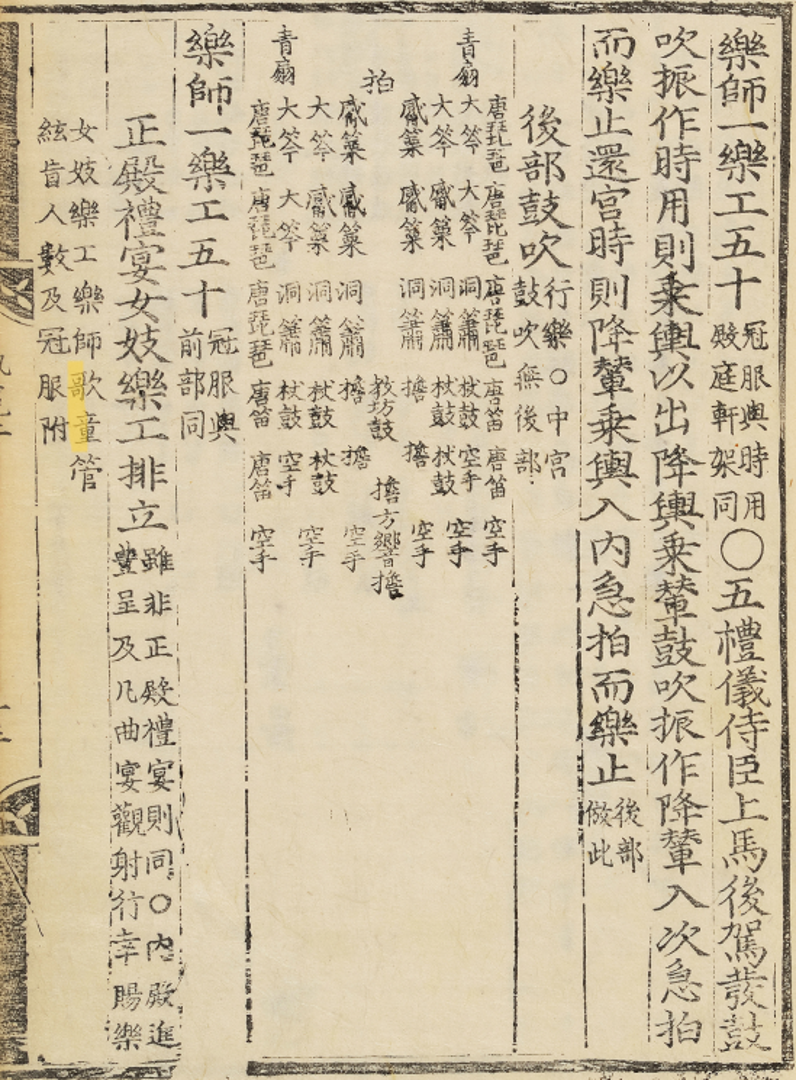 樂師一樂工五十冠服與時用殿庭軒架同○五禮儀侍臣上馬後駕發鼓
吹振作時用則乘輿以出降輿乘輦鼓吹振作降輦入次急拍
而樂止還宮時則降輦乘輿入內急拍而樂止後部倣此
後部鼓吹行樂○中宮鼓吹無後部
唐琵琶 唐琵琶 唐琵琶 唐笛 唐笛 空手
青扇 大笒 大笒 洞簫 杖鼓 空手 空手
大笒 觱篥 洞簫 杖鼓 杖鼓
觱篥 觱篥 洞簫 擔 擔 空手
拍 敎坊鼓 擔方響擔
觱篥 觱篥 洞簫 擔 擔 空手
大笒 觱篥 洞簫 杖鼓 杖鼓 空手
青扇 大笒 大笒 洞簫 杖鼓 空手
唐琵琶 唐琵琶 唐琵琶 唐笛 唐笛 空手
樂師一樂工五十冠服與前部同
正殿禮宴女妓樂工排立雖非正殿禮宴則同○內殿進豐呈及凡曲宴觀射行幸賜樂
女妓樂工樂師歌童管
絃盲人數及冠服附